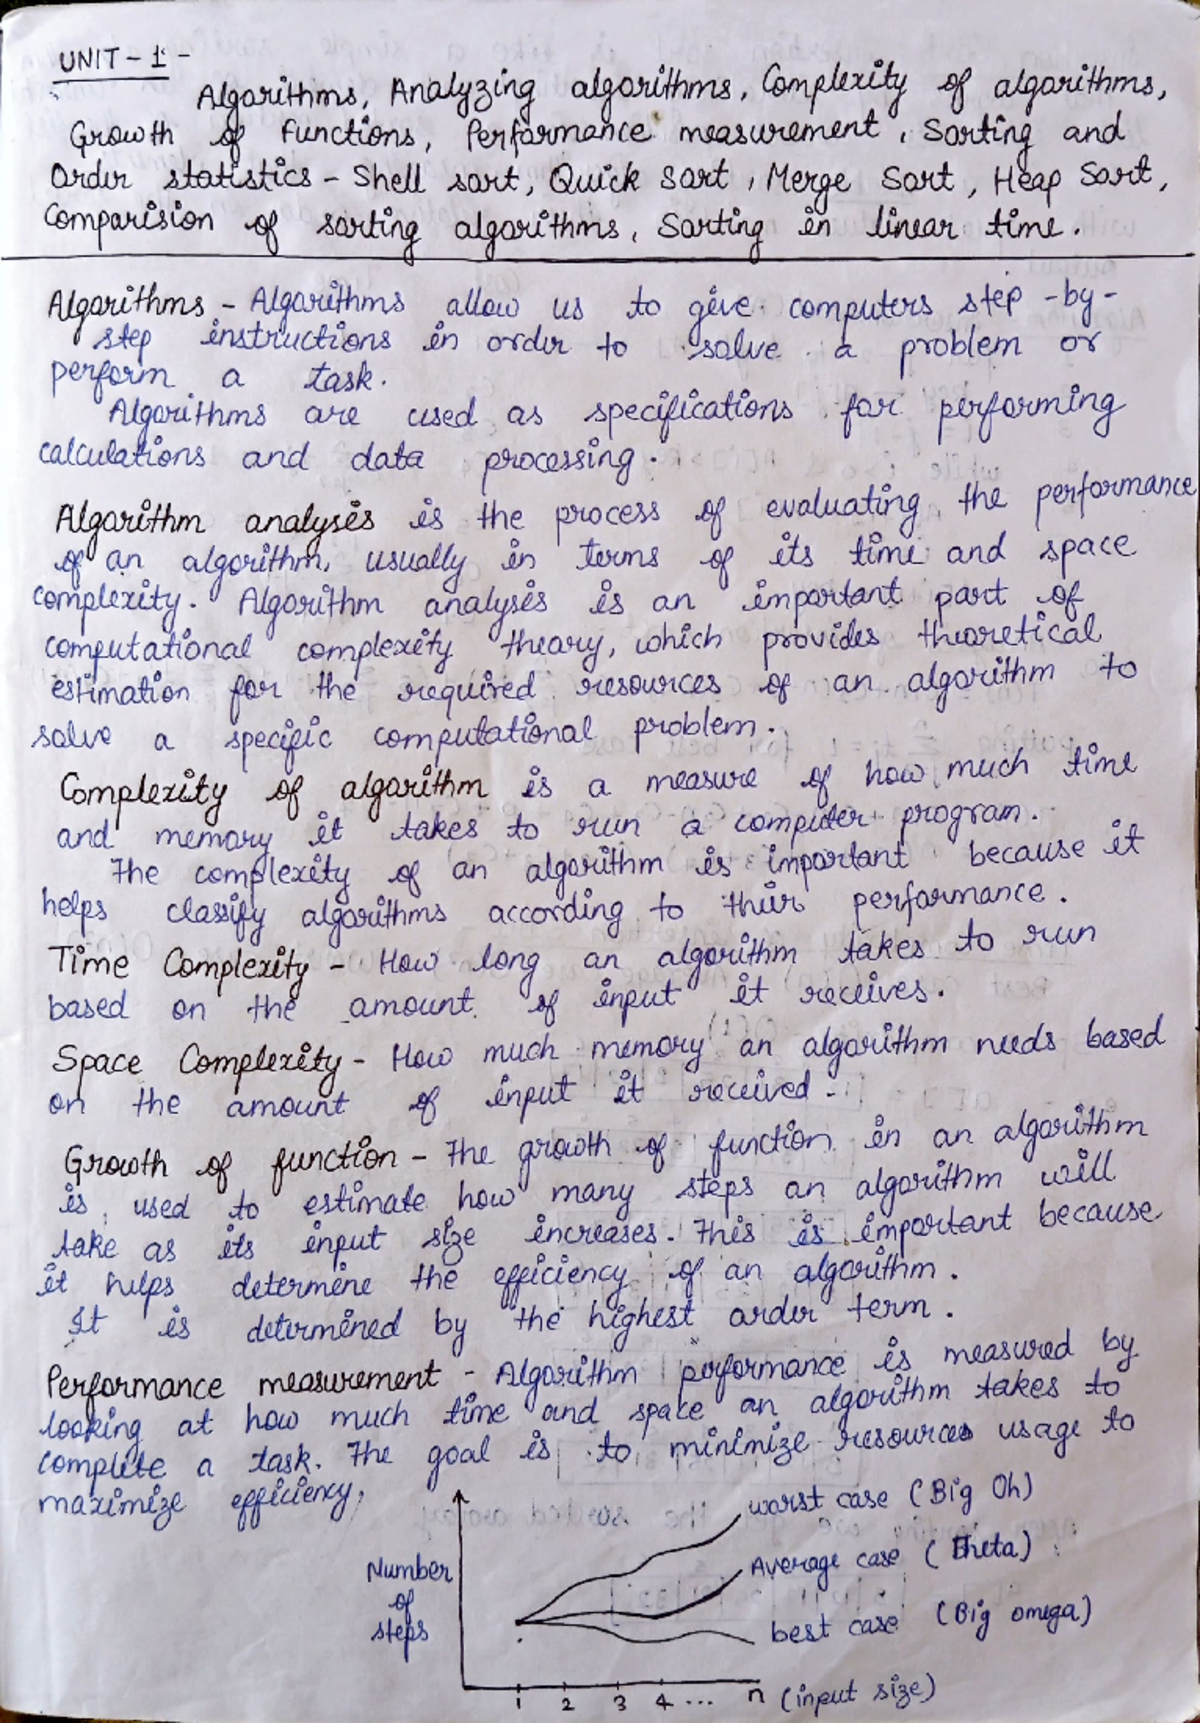 UNIT - 1 -
Algorithms, Analyzing algorithms, Complexity of algorithms,
Growth of Functions, Performance measurement, Sorting and
Order statistics - Shell sort, Quick Sort, Merge Sort, Heap Sort,
Comparision of sorting algorithms, Sorting in linear time.
Algorithms - Algorithms allow us to give computers step-by-
step instructions in order to solve a problem or
perform a task.
Algorithms are used as specifications for performing
calculations and data processing.
Algorithm analysis is the process of evaluating the performance
of an algorithm, usually in terms of its time and space
complexity. Algorithm analysis is an important part of
computational complexity theory, which provides theoretical
estimation for the required resources of an algorithm to
solve a specific computational problem.
Complexity of algorithm is a measure of how much time
and memory it takes to run a computer program.
The complexity of an algorithm is important because it
helps classify algorithms according to their performance.
Time Complexity - How long an algorithm takes to run
based on the amount of input it receives.
Space Complexity - How much memory an algorithm needs based
on the amount of input it received -
Growth of function - The growth of function in an algorithm
is used to estimate how many steps an algorithm will
take as its input size increases. This is important because
it helps determine the efficiency of an algorithm.
It is determined by the highest order term.
Performance measurement - Algorithm performance is measured by
looking at how much time and space an algorithm takes to
complete a task. The goal is to minimize resources usage to
maximize efficiency.
worst case (Big Oh)
Number
of
steps
Average case (Theta)
best case (Big omega)
1 2 3 4 ... n (input size)